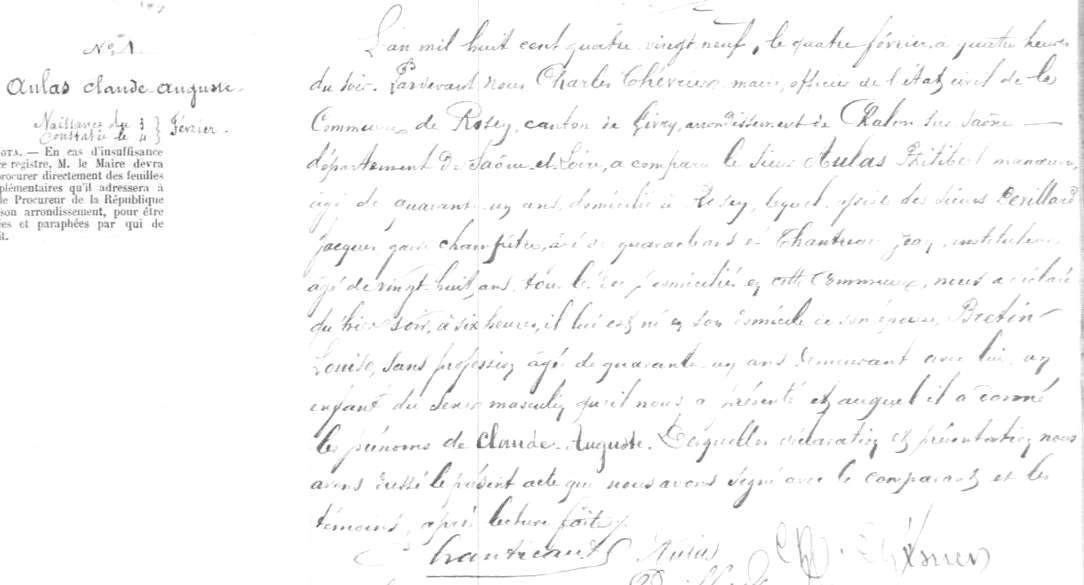 N° 1.
Aulas Claude Auguste.
Naissance du 3
Constatée le 4
février.
NOTA. — En cas d'insuffisance
ce registre, M. le Maire devra
procurer directement des feuilles
plémentaires qu'il adressera à
le Procureur de la République
son arrondissement, pour être
ées et paraphées par qui de
it.
L'an mil huit cent quatre-vingt-neuf, le quatre février, a quatre heures
du soir. Pardevant nous Charles Thévenin maire, officier de l'état civil de la
Commune de Rosey, canton de Givry, arrondissement de Chalon sur Saône —
département de Saône-et-Loire, a comparu le sieur Aulas Philibert manœuvre,
âgé de quarante-un ans, domicilié à Rosey, lequel assisté des sieurs Devillard
Jacques garde champêtre, âgé de quarante ans et Chantreau Jean, instituteur
âgé de vingt-huit ans, tous les deux domiciliés en cette commune, nous a déclaré
qu'hier soir, à six heures, il lui est né en son domicile de son épouse, Bretin
Louise, sans profession âgée de quarante-un ans demeurant avec lui, un
enfant du sexe masculin qu'il nous a présenté et auquel il a donné
les prénoms de Claude-Auguste. Desquelles déclaration et présentation nous
avons dressé le présent acte que nous avons signé avec le comparant et les
témoins, après lecture faite.
Aulas